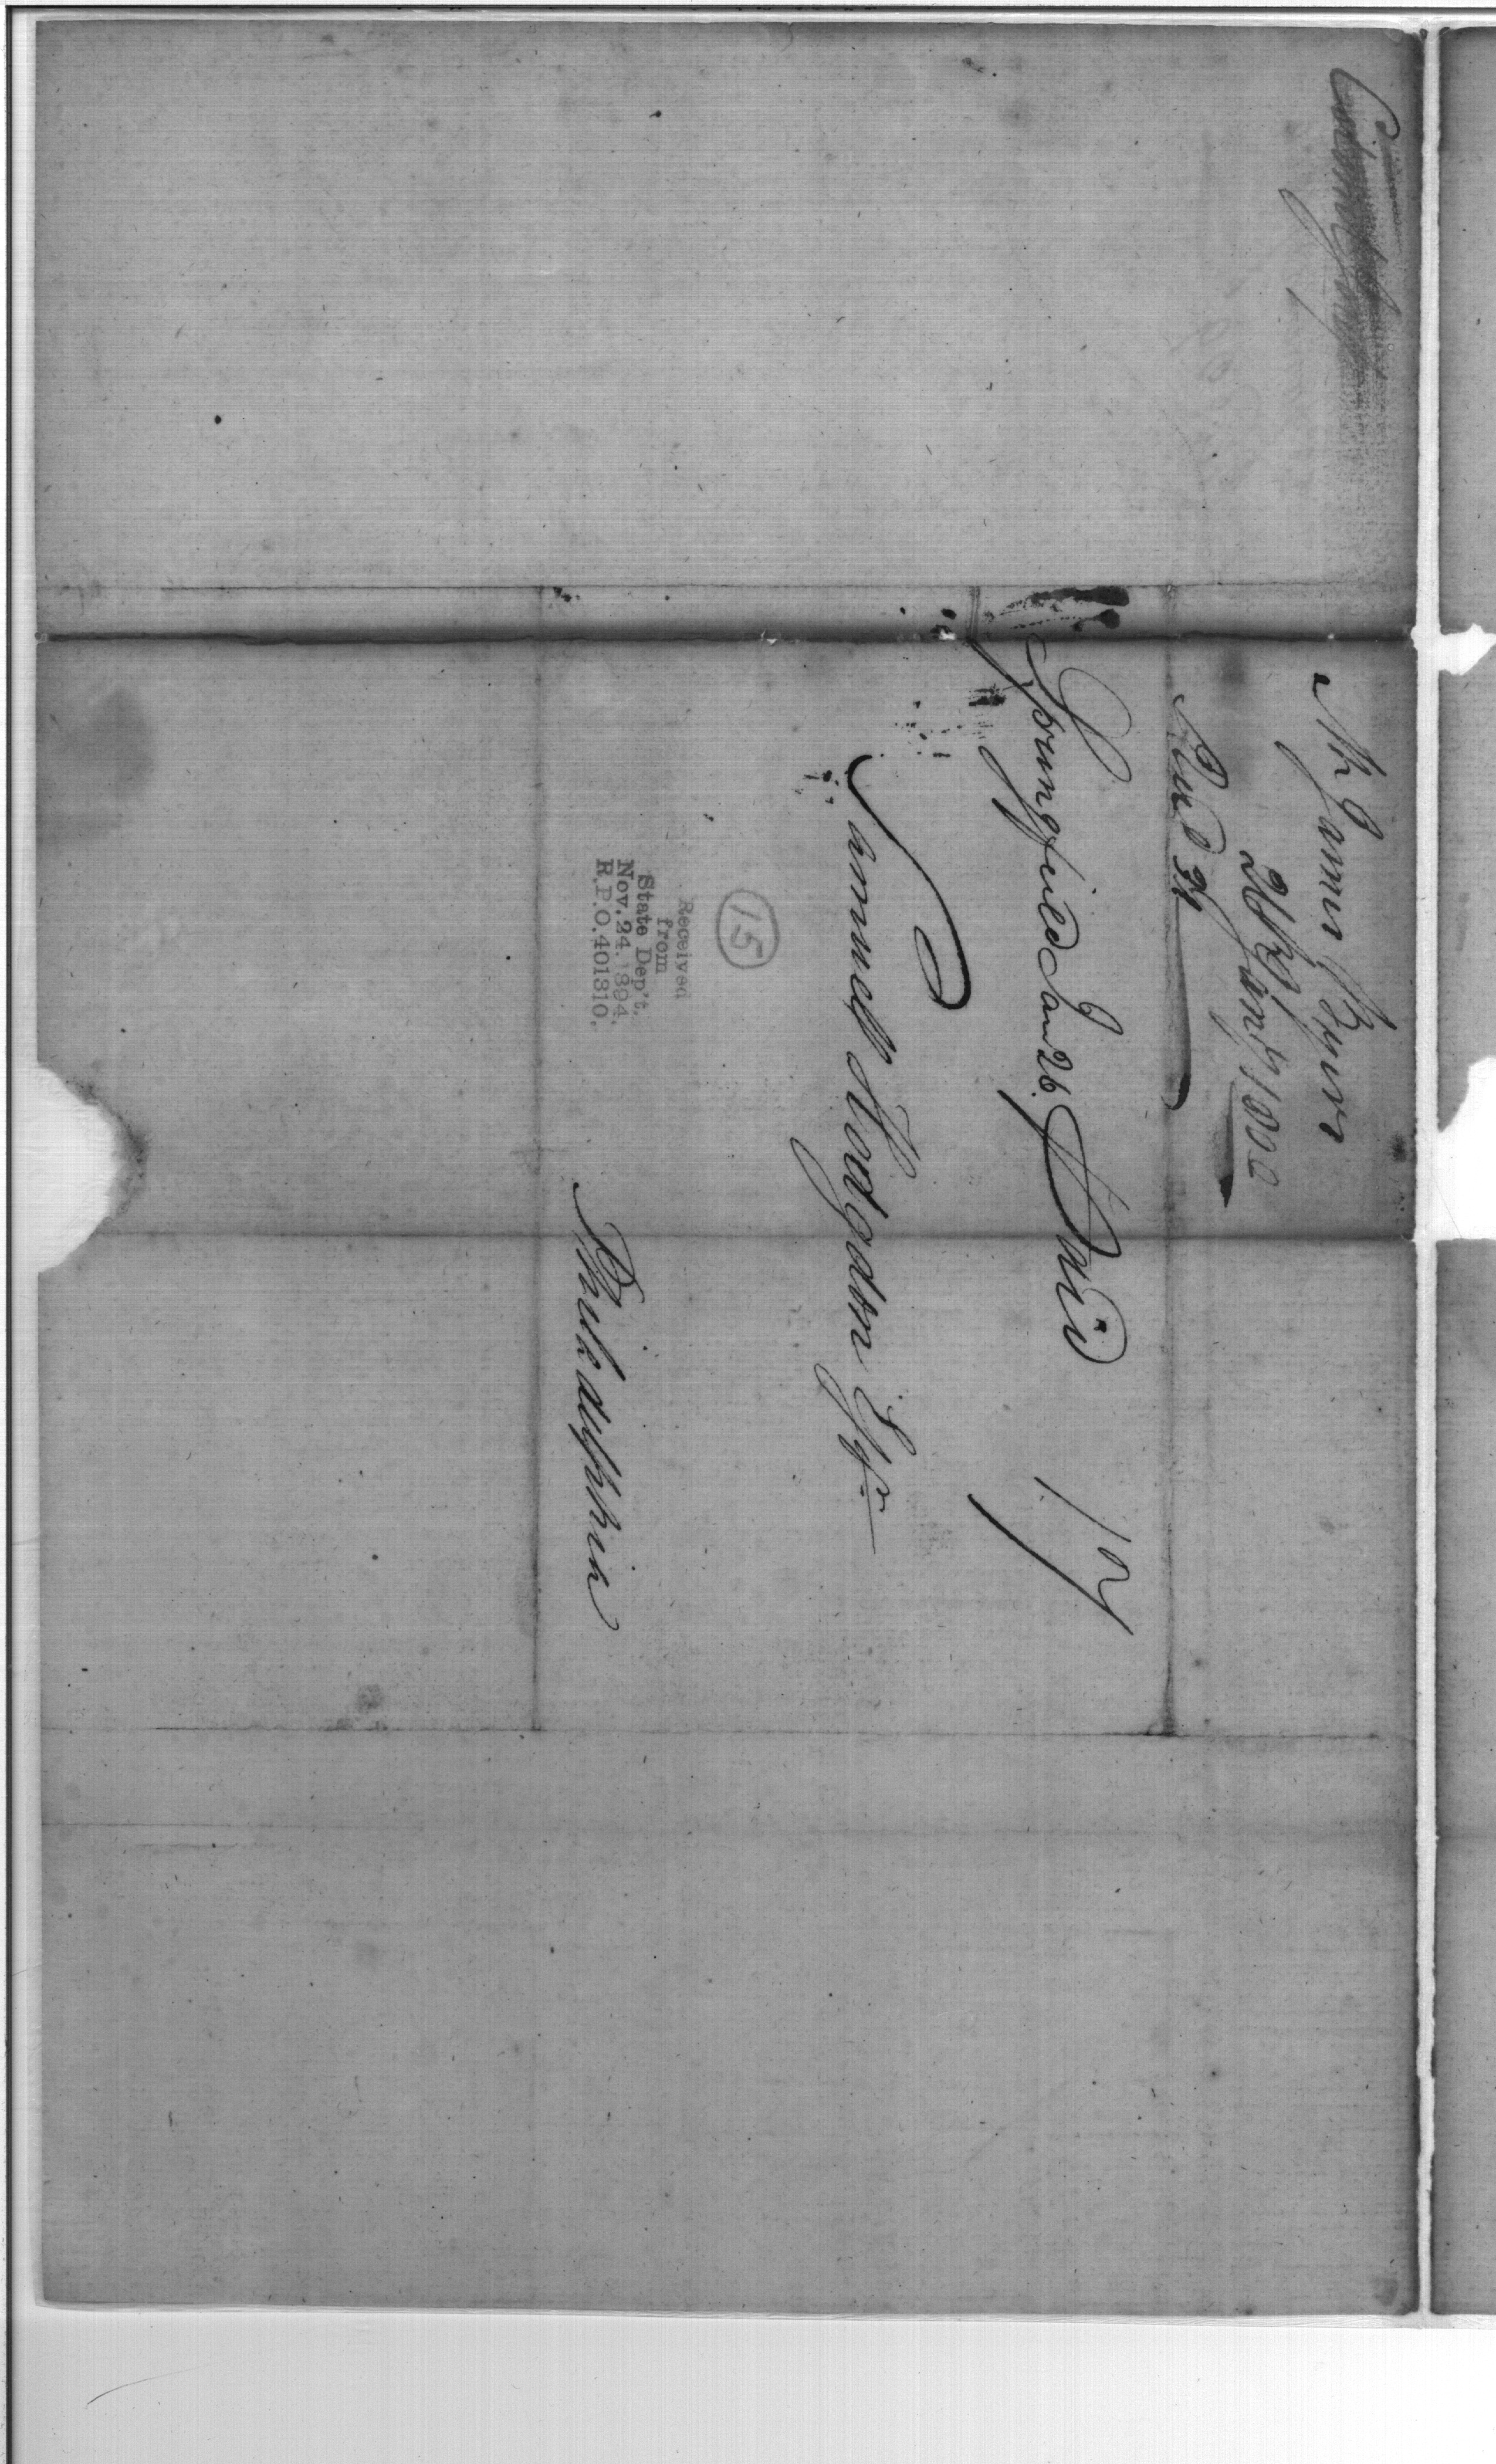 Mr James Byers
26th Jany 1800
Springfield Jan 26. Paid 17
Samuell Hodgdon Esqr
(15)
Received
from
State Dep't.
Nov. 24. 1894.
R.P.O. 401310.
Philadelphia